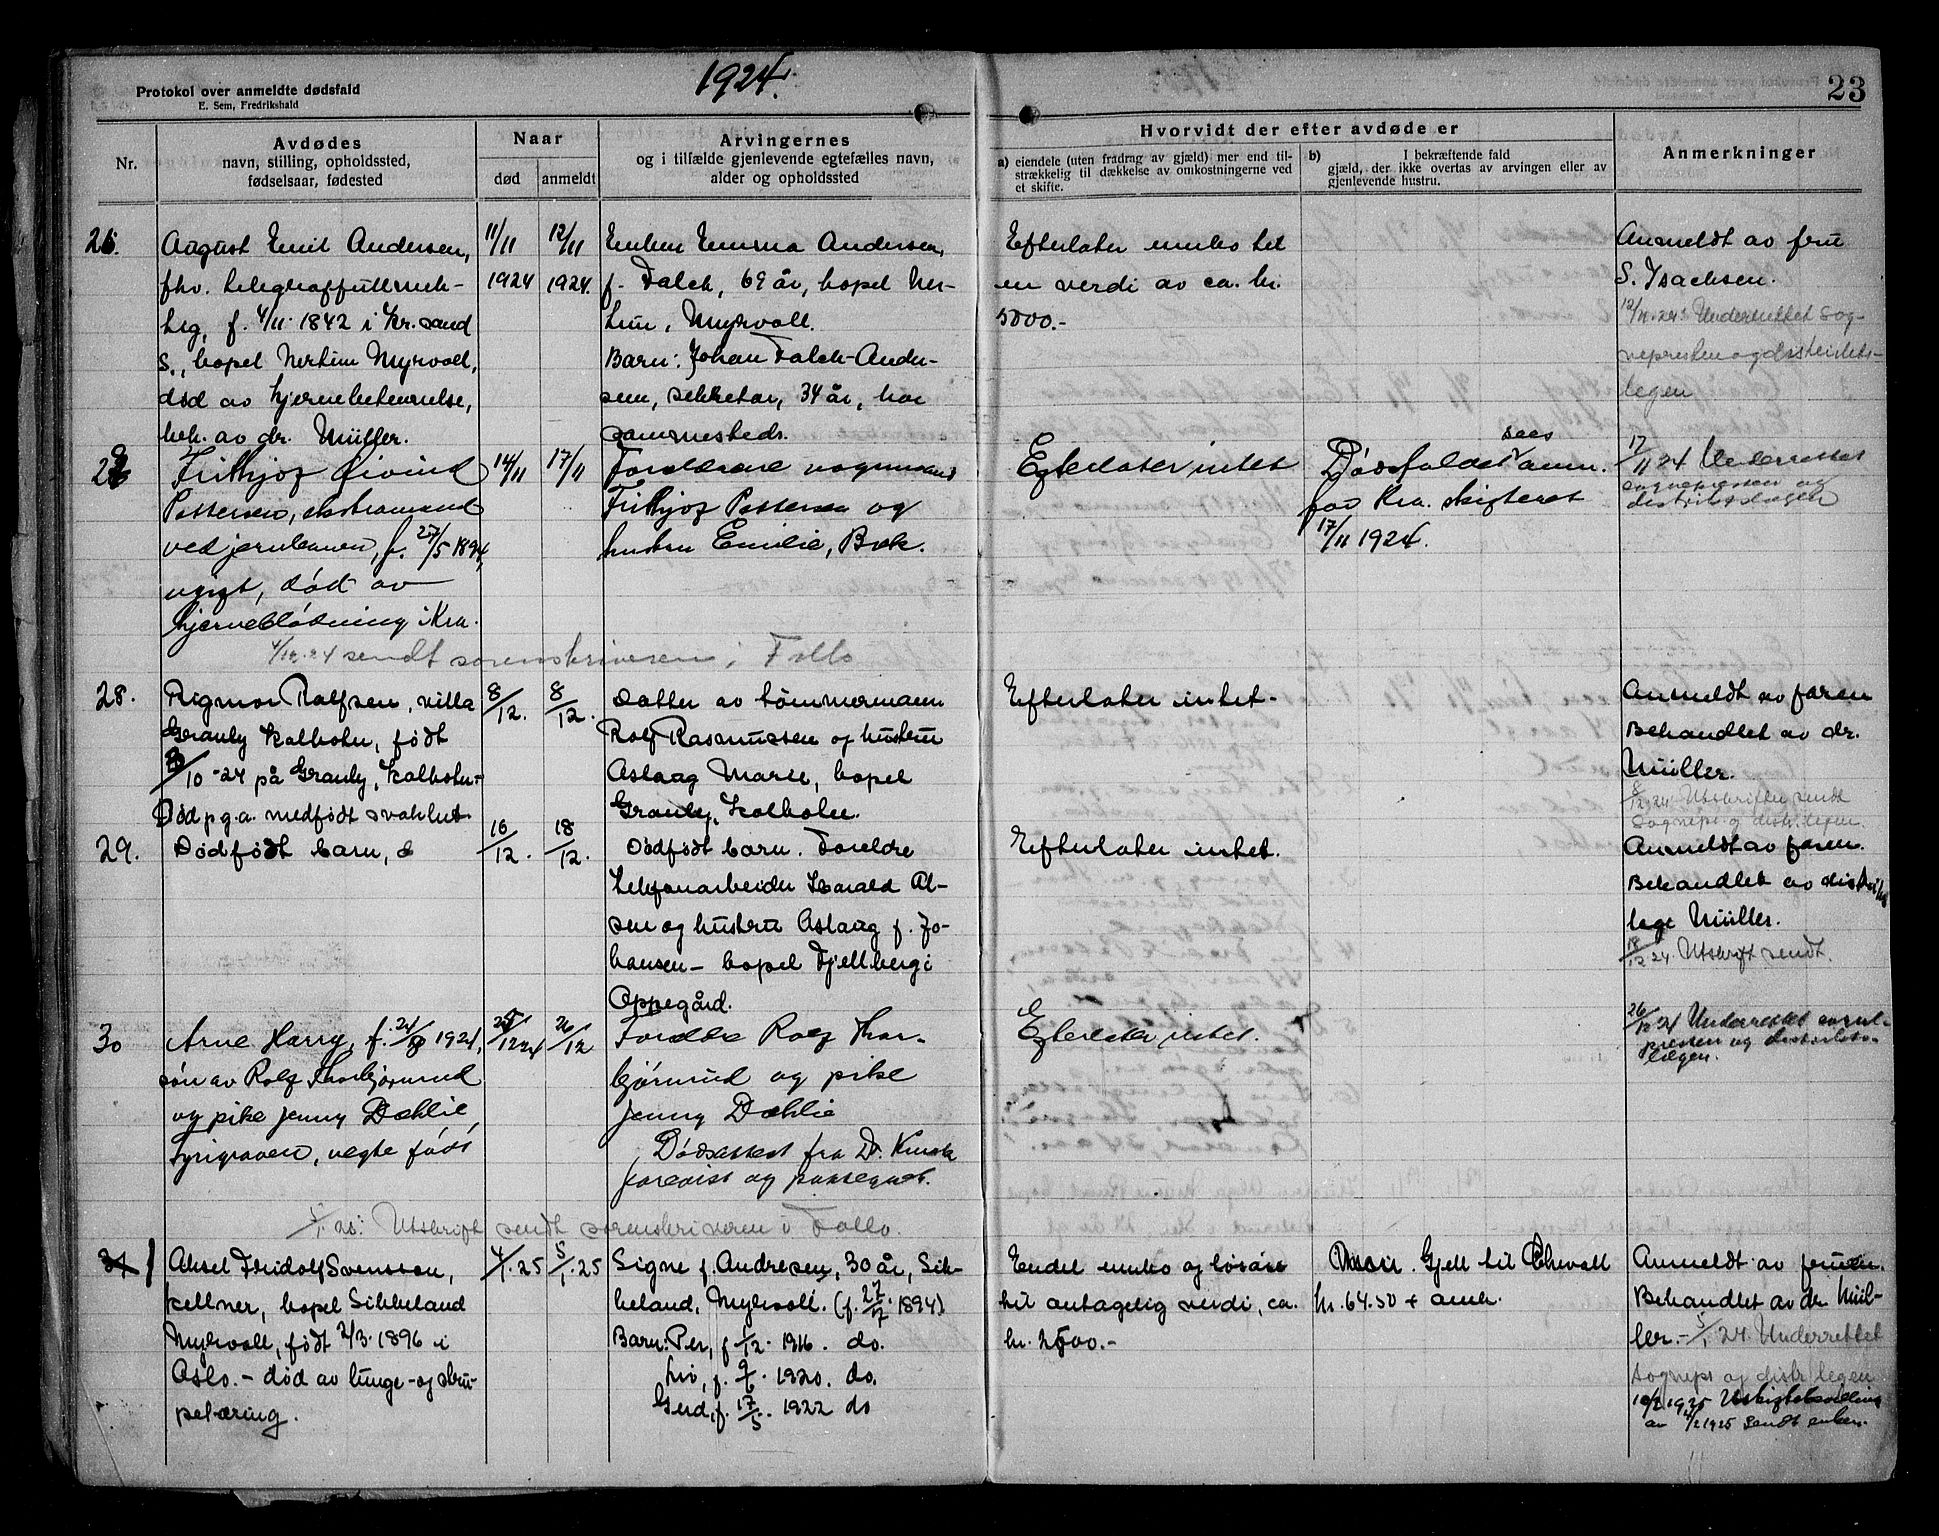 1924.
23
Protokol over anmeldte dødsfald
E. Sem, Fredrikshald
Nr.
Avdødes
navn, stilling, opholdssted,
fødselsaar, fødested
Naar
død
anmeldt
Arvingernes
og i tilfælde gjenlevende egtefælles navn,
alder og opholdssted
Hvorvidt der efter avdøde er
a) eiendele (uten fradrag av gjæld) mer end til-
strækkelig til dækkelse av omkostningerne ved
et skifte.
b) I bekræftende fald
gjæld, der ikke overtas av arvingen eller av
gjenlevende hustru.
Anmerkninger
26.
August Emil Andersen,
fhv. telegraffullmek-
tig, f. 4/11 1842 i Kr.sand
S., bopel Myrvoll,
død av hjernebetennelse,
beh. av dr. Müller.
11/11
1924
12/11
1924.
Enken Emma Andersen,
f. Falch, 69 år, bopel
Myrvoll.
Barn: Johan Falch-Ander-
sen, sekretær, 34 år, bor
sammesteds.
Efterlater innbo til
en verdi av ca. kr.
5000.-
Anmeldt av fru
S. Isachsen.
12/11.24: Underrettet sog-
nepresten og distrikts-
legen
27
Frithjof Øivind
Pettersen, ekstramand
ved jernbanen, f. 27/5 1894,
ugift, død av
hjerneblødning i Kra.
14/11
17/11
Forældrene vognmand
Frithjof Pettersen og
hustru Emilie, Bæk.
Efterlater intet
Dødsfaldet sees anm.
for Kra. skifteret
17/11 1924.
17/11 24 Underrettet
sognepresten og
distriktslægen
4/12.24 sendt sorenskriveren i Follo
28.
Rigmor Rolfsen, villa
Granly Kolbotn, født
3/10-24 på Granly, Kolbotn.-
Død p.g.a. medfødt svakhet.
8/12.
8/12.
Datter av tømmermann
Rolf Rasmussen og hustru
Aslaug Marie, bopel
Granly, Kolbotn.
Efterlater intet.
Anmeldt av faren
Behandlet av dr.
Müller.
8/12 24: Utskrifter sendt
Sognepr. og distr.legen.
29.
Dødfødt barn,
16/12.
18/12.
Dødfødt barn. Foreldre
telefonarbeider Harald Al-
sen og hustru Aslaug f. Jo-
hansen - bopel Fjellberg i
Oppegård.
Efterlater intet.
Anmeldt av faren.
Behandlet av distrikts
lege Müller.
18/12 24. Utskrift sendt.
30
Arne Harry, f. 24/12 1924,
søn av Rolf Thorbjørnrud
og pike Jenny Dæhlie,
Tyrigraven, uegte født
25/12 24
26/12
Foreldre Rolf Thor-
bjørnrud og pike
Jenny Dæhlie
Dødsattest fra Dr.
forevist og paategnet.
Efterlater intet.
26/12 24 Underrettet sogne-
presten og distrikts-
lægen.
5/1 25: Utskrift sendt sorenskriveren i Follo.
31 1
Aksel Fridolf Svensson,
kellner, bopel Sikkeland
Myrvoll, født 2/3 1896 i
Oslo. - død av lunge- og stru-
petæring.
4/1.25
5/1.25
Signe f. Andresen, 30 år, Sik-
keland, Myrvoll. (f. 27/7 1894)
Barn: Per, f. 1/12 1916. do.
Liv, f. 9/6 1920. do.
Gerd, f. 17/5. 1922 do
Endel innbo og løsøre
til antagelig verdi, ca.
kr. 2500.-
Gjell til
kr. 64.50 +
Anmeldt av fruen.
Behandlet av dr. Mül-
ler. - 5/1 24. Underrettet
Sognepr og distr legen
10/2 1925
av 4/2 1925 sendt enken.